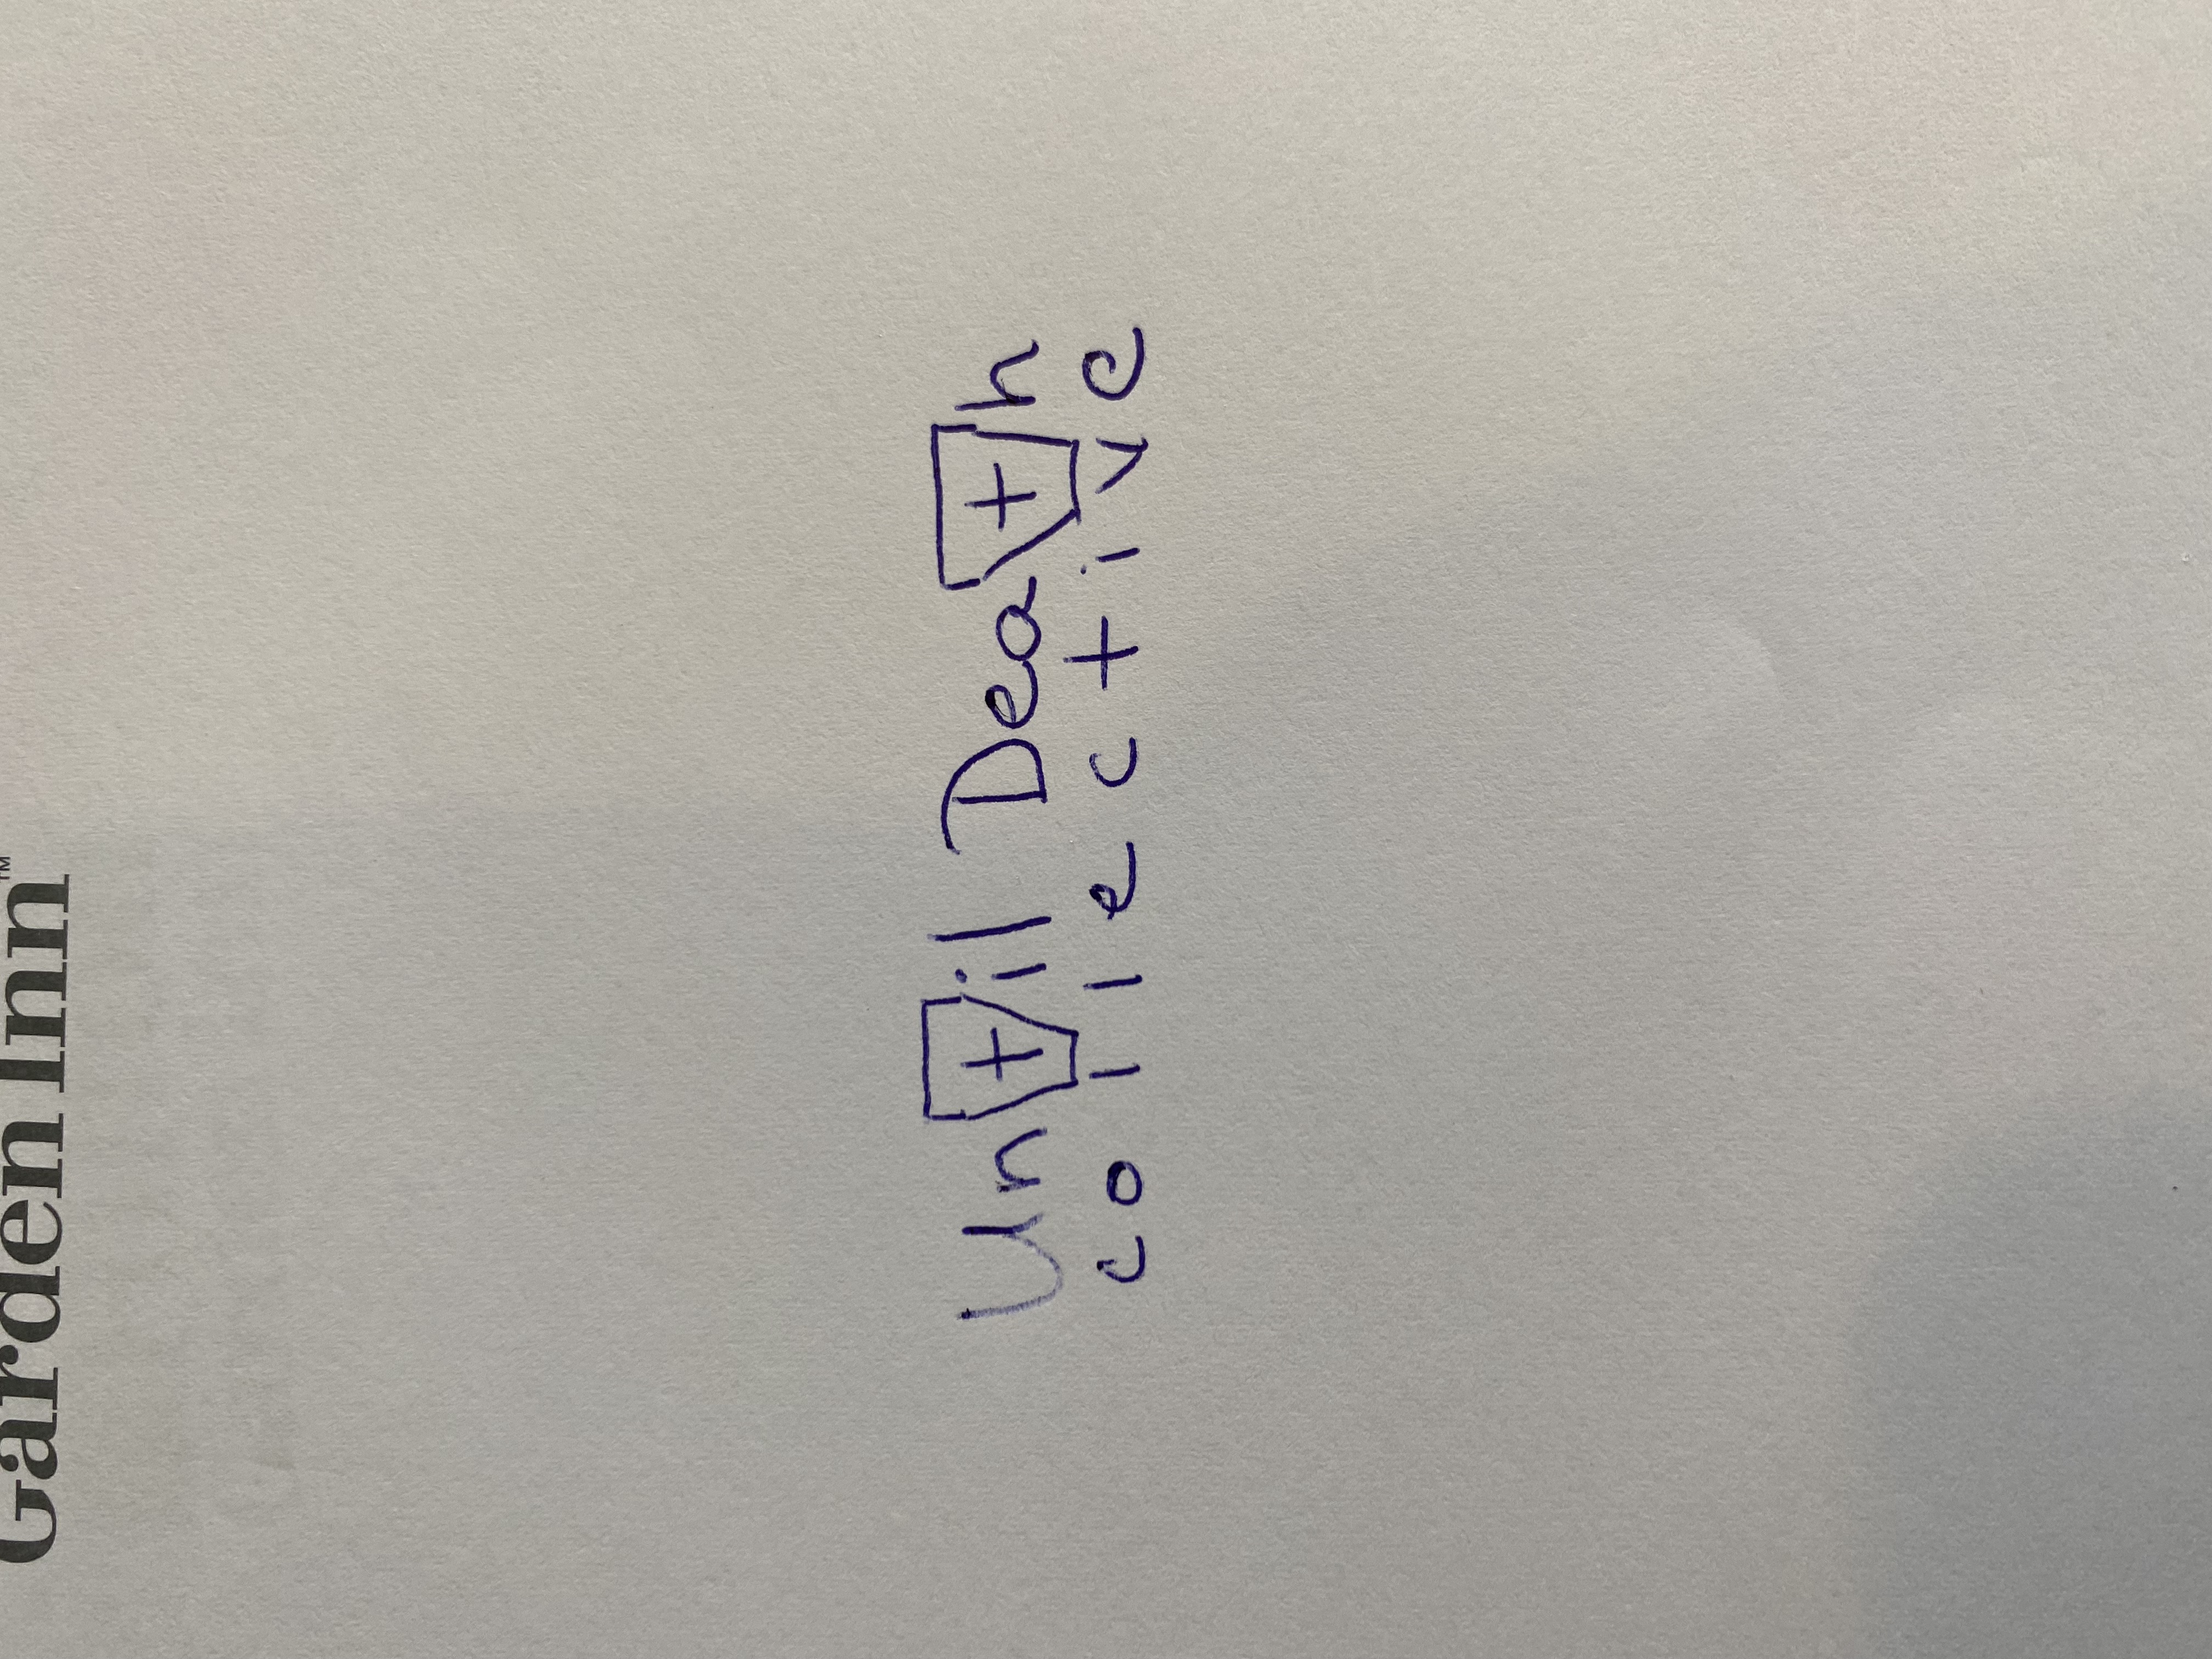 Garden Inn™
Until Death
collective